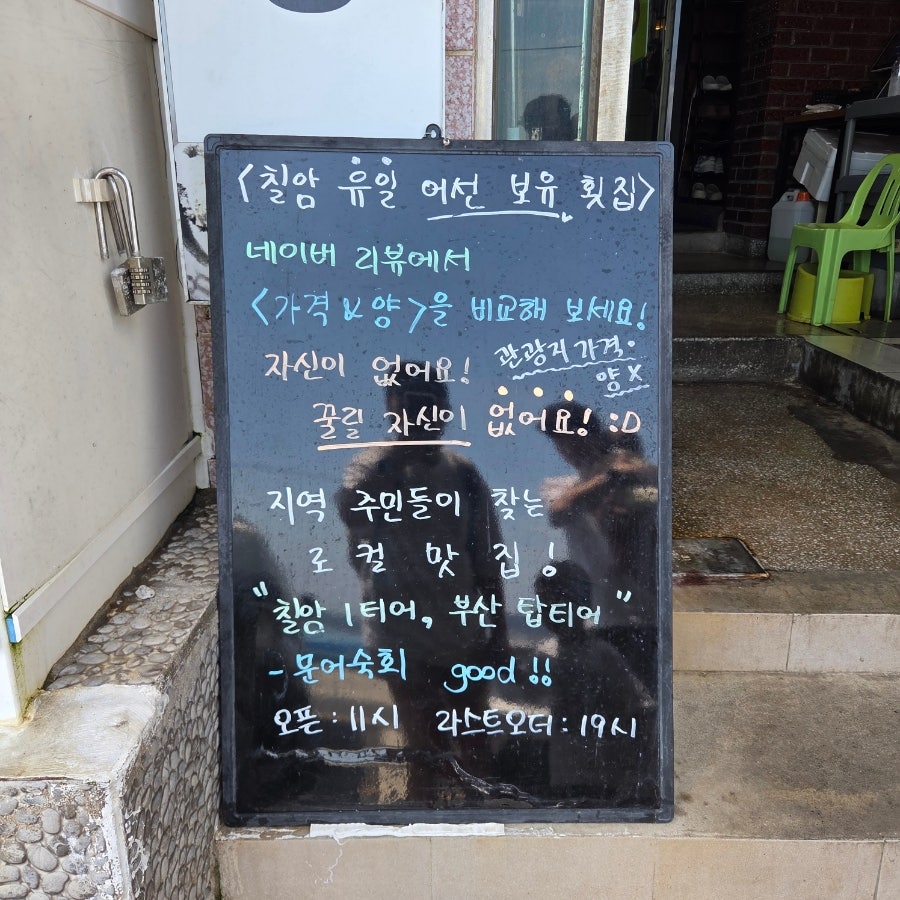 <칠암 유일 어선 보유 횟집>
네이버 리뷰에서
<가격 & 양>을 비교해 보세요!
자신이 없어요! 관광지 가격·
양 X
꿀릴 자신이 없어요! :D
지역 주민들이 찾는
로컬 맛집!
"칠암 1티어, 부산 탑티어"
- 문어숙회 good!!
오픈 : 11시 라스트오더 : 19시